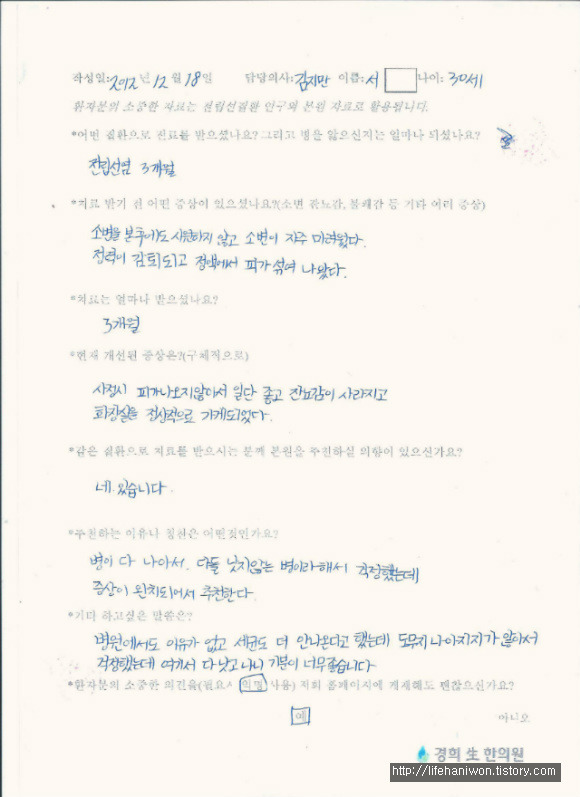 작성일:2012년 12월 18일 담당의사:김지만 이름:서 나이: 30세
환자분의 소중한 자료는 전립선질환 연구와 본원 자료로 활용됩니다.
*어떤 질환으로 진료를 받으셨나요? 그리고 병을 앓으신지는 얼마나 되셨나요?
전립선염 3개월
*치료 받기 전 어떤 증상이 있으셨나요?(소변 잔뇨감, 불쾌감 등 기타 여러 증상)
소변을 본후에도 시원하지 않고 소변이 자주 마려웠다.
정력이 감퇴되고 정액에서 피가 섞여 나왔다.
*치료는 얼마나 받으셨나요?
3개월
*현재 개선된 증상은?(구체적으로)
사정시 피가나오지않아서 일단 좋고 잔뇨감이 사라지고
화장실을 정상적으로 가게되었다.
*같은 질환으로 치료를 받으시는 분께 본원을 추천하실 의향이 있으신가요?
네. 있습니다.
*추천하는 이유나 칭찬은 어떤것인가요?
병이 다 나아서. 다들 낫지않는 병이라해서 걱정했는데
증상이 완치되어서 추천한다.
*기타 하고싶은 말씀은?
병원에서도 이유가 없고 세균도 더 안나온다고 했는데 도무지 나아지지가 않아서
걱정했는데 여기서 다 낫고 나니 기분이 너무좋습니다
*환자분의 소중한 의견을(필요시 익명 사용) 저희 홈페이지에 게재해도 괜찮으신가요?
예 아니오
경희 生 한의원
http://lifehaniwon.tistory.com